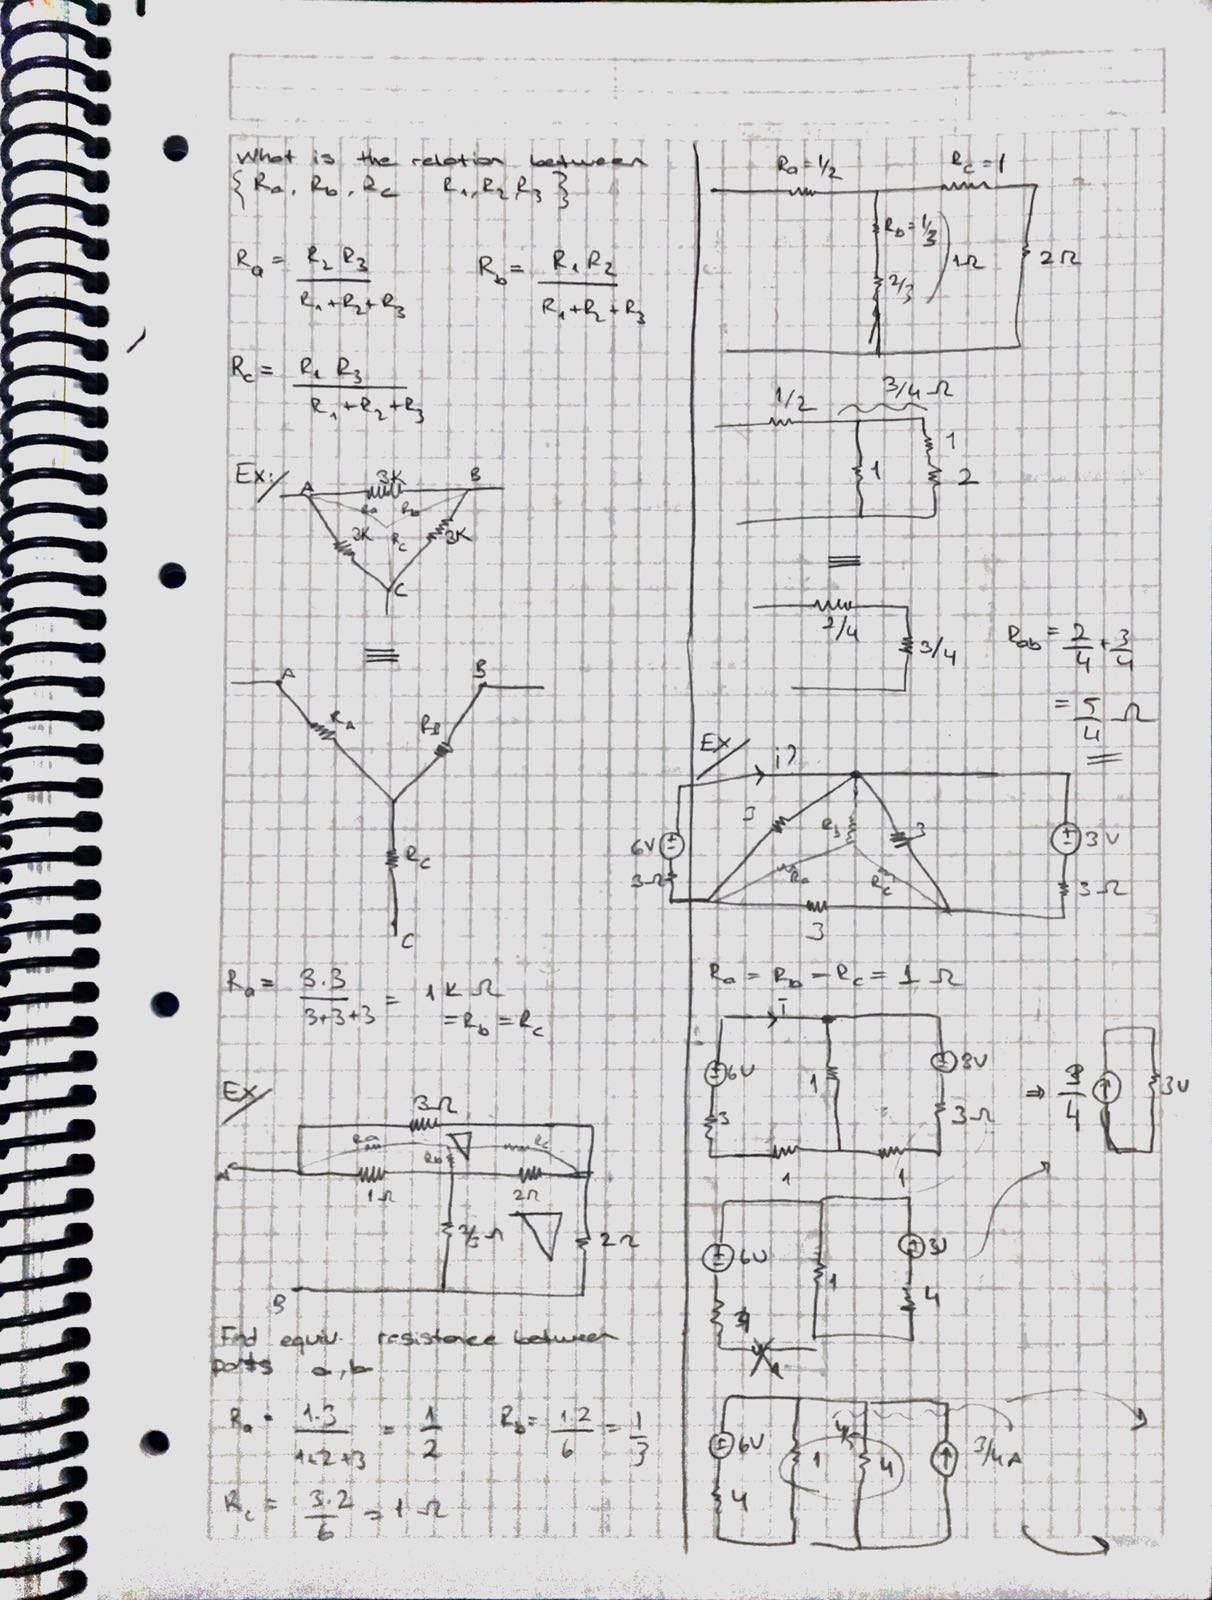 What is the relation between
{ Ra, Rb, Rc R1, R2, R3 }
Ra = R2 R3 / R1+R2+R3
Rb = R1 R2 / R1+R2+R3
Rc = R1 R3 / R1+R2+R3
Ex:/
A 3K B
Ra Rb
3K Rc 3K
C
≡
A B
RA RB
Rc
C
Ra = 3.3 / 3+3+3 = 1K Ω
= Rb = Rc
EX/
3Ω
Ra Rb Rc
A 1Ω 2Ω
2/3 Ω 2Ω
B
Find equiv. resistence between
ports a,b
Ra = 1.3 / 1+2+3 = 1/2 Rb = 1.2 / 6 = 1/3
Rc = 3.2 / 6 = 1 Ω
Ra = 1/2 Rc = 1
Rb = 1/3 1Ω 2Ω
2/3
1/2 3/4 Ω
1 1
2
≡
2/4
3/4
Rab = 2/4 + 3/4
= 5/4 Ω
EX/ i?
3 Rb 3
6V 3V
3Ω Ra Rc 3Ω
3
Ra = Rb = Rc = 1 Ω
i
6V 1 3V
3 3Ω
1 1
⇒ 3/4 3V
6V 1 3V
4
6V 1 4/5 4 3/4 A
4